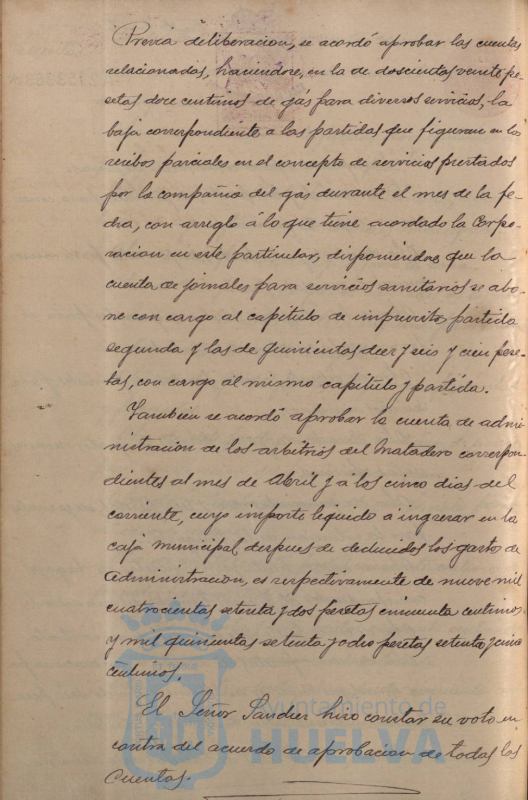 Previa deliberacion, se acordó aprobar las cuentas
relacionadas, haciendose, en la de doscientas veinte pe-
setas doce centimos de gás para diversos servicios, la
baja correspondiente a las partidas que figuran en los
recibos parciales en el concepto de servicios prestados
por la compañia del gás durante el mes de la fe-
cha, con arreglo á lo que tiene acordado la Corpo-
racion en este particular, disponiendose que la
cuenta de jornales para servicios sanitarios se abo-
ne con cargo al capitulo de imprevistos partida
segunda y las de quinientas diez y seis y cien pese-
tas, con cargo al mismo capitulo y partida.
Tambien se acordó aprobar la cuenta de admi-
nistracion de los arbitrios del Matadero correspon-
dientes al mes de Abril y á los cinco dias del
corriente, cuyo importe liquido á ingresar en la
caja municipal, despues de deducidos los gastos de
Administracion, es respectivamente de nueve mil
cuatrocientas setenta y dos pesetas cincuenta centimos
y mil quinientas setenta y ocho pesetas setenta y cinco
centimos.
El Señor Sanchez hizo constar su voto en
contra del acuerdo de aprobacion de todas las
Cuentas.
Ayuntamiento de
HUELVA